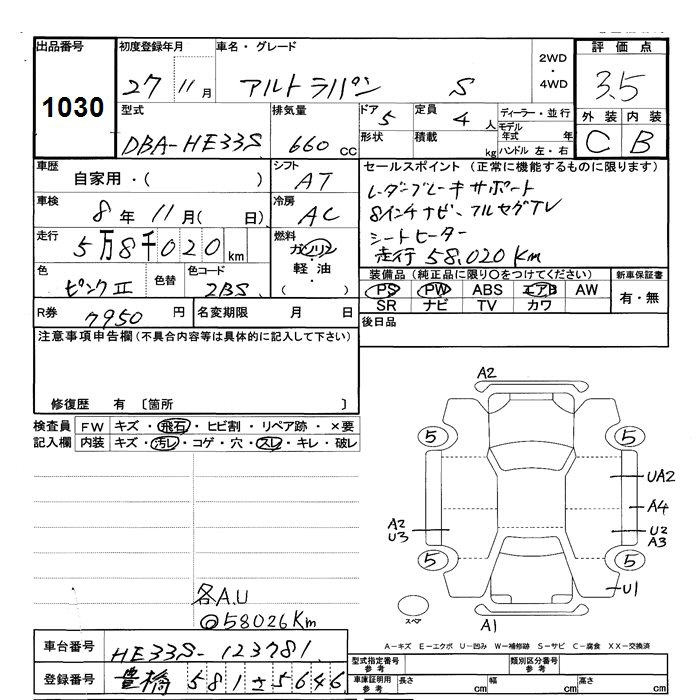 出品番号 初度登録年月 車名・グレード 2WD・4WD 評価点
1030 27 11月 アルトラパン S 3.5
型式 排気量 ドア 5 定員 4人 ディーラー・並行 外装 内装
DBA-HE33S 660cc 形状 積載 kg モデル年式 年 C B
ハンドル 左・右
車歴 シフト セールスポイント (正常に機能するものに限ります)
自家用・( ) AT レーダーブレーキサポート
車検 冷房 8インチナビ・フルセグTV
8年11月( 日) AC シートヒーター
走行 燃料 走行 58,020Km
5万8千020km ガソリン・軽油・( )
色 色替 色コード 装備品 (純正品に限り○をつけてください) 新車保証書
ピンクII ZBS PS PW ABS エアB AW 有・無
SR ナビ TV カワ
R券 7950円 名変期限 月 日 後日品
注意事項申告欄 (不具合内容等は具体的に記入して下さい)
修復歴 有 〔箇所 〕
検査員 FW キズ・飛石・ヒビ割・リペア跡・×要
記入欄 内装 キズ・汚レ・コゲ・穴・スレ・キレ・破レ
A2
5 5
UA2
A4
A2 U2
U3 A3
5 5
U1
スペア A1
各A.U
◎58026Km
A-キズ E-エクボ U-凹み W-補修跡 S-サビ C-腐食 XX-交換済
車台番号 HE33S-123781
型式指定番号 参考 類別区分番号 参考
登録番号 豊橋 581 さ 5646
車庫証明用 参考 長さ cm 幅 cm 高さ cm